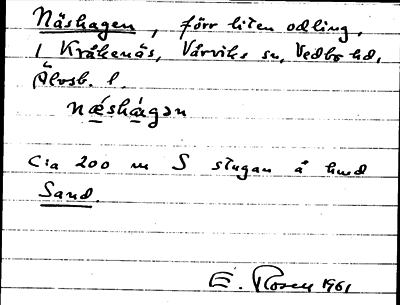 Näshagen, förr liten odling,
i Kråkenäs, Vårviks sn, Vedbo hd,
Älvsb. l.
nǽshàgən
Cia 200 m S stugan å hmd
Sand.
E. Rosen 1961